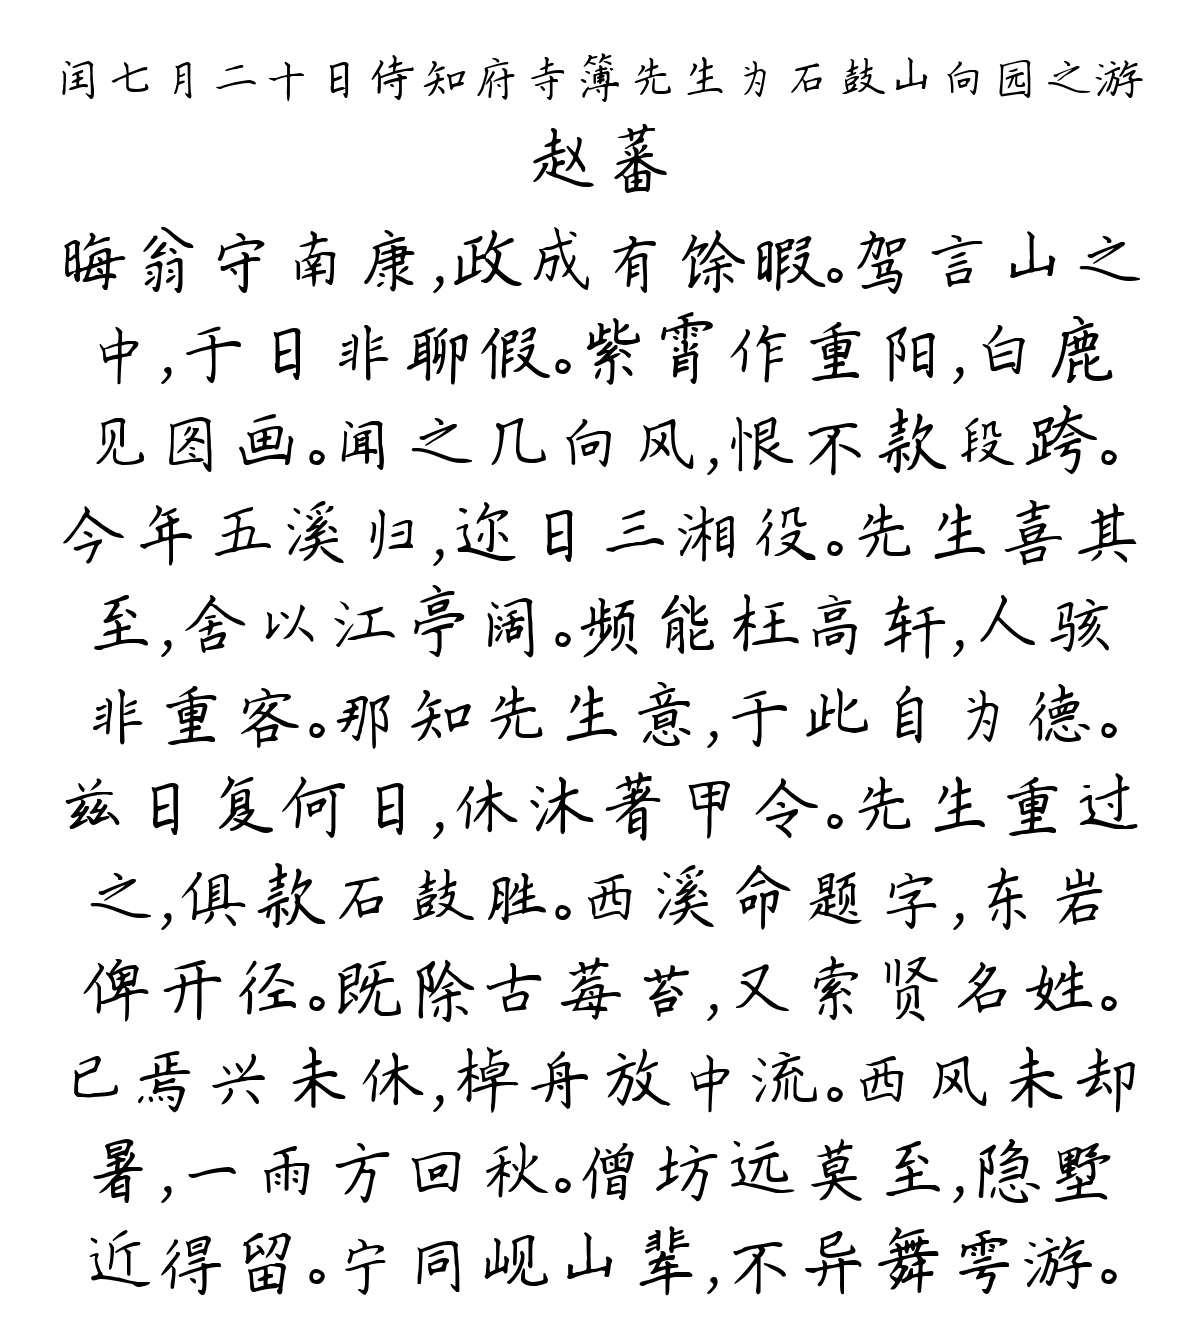 闰七月二十日侍知府寺簿先生为石鼓山向园之游
赵蕃
晦翁守南康,政成有馀暇。驾言山之
中,于日非聊假。紫霄作重阳,白鹿
见图画。闻之几向风,恨不款段跨。
今年五溪归,迩日三湘役。先生喜其
至,舍以江亭阔。频能枉高轩,人骇
非重客。那知先生意,于此自为德。
兹日复何日,休沐著甲令。先生重过
之,俱款石鼓胜。西溪命题字,东岩
俾开径。既除古莓苔,又索贤名姓。
已焉兴未休,棹舟放中流。西风未却
暑,一雨方回秋。僧坊远莫至,隐墅
近得留。宁同岘山辈,不异舞雩游。